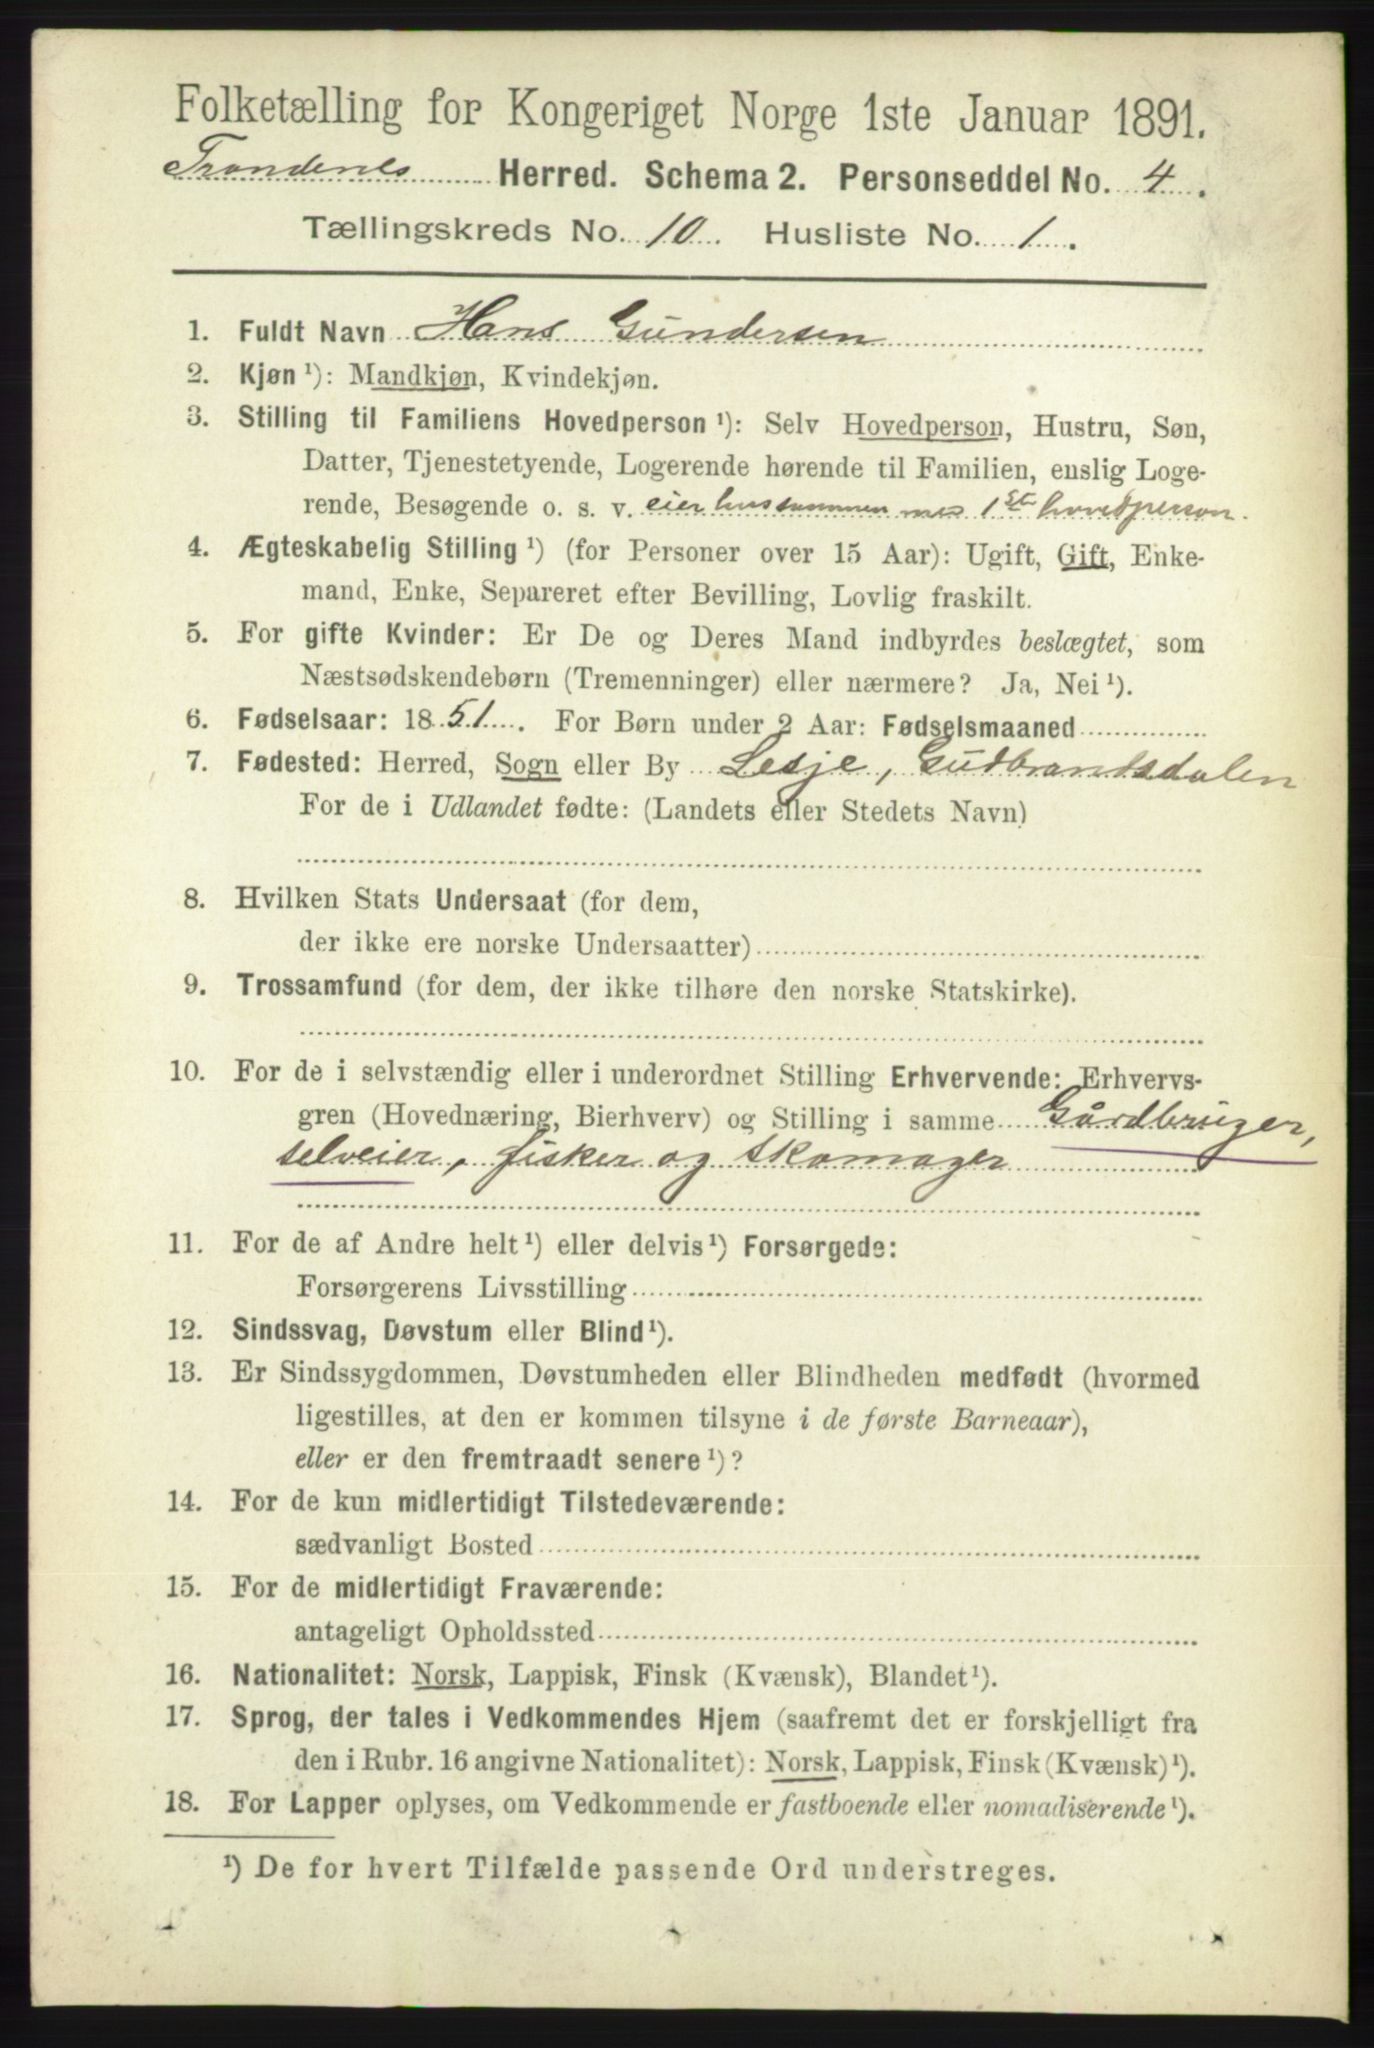 Folketælling for Kongeriget Norge 1ste Januar 1891.
Trondenes Herred. Schema 2. Personseddel No. 4.
Tællingskreds No. 10. Husliste No. 1.
1. Fuldt Navn Hans Gundersen
2. Kjøn¹): Mandkjøn, Kvindekjøn.
3. Stilling til Familiens Hovedperson¹): Selv Hovedperson, Hustru, Søn,
Datter, Tjenestetyende, Logerende hørende til Familien, enslig Loge-
rende, Besøgende o. s. v. eier hus sammen med 1ste hovedperson.
4. Ægteskabelig Stilling¹) (for Personer over 15 Aar): Ugift, Gift, Enke-
mand, Enke, Separeret efter Bevilling, Lovlig fraskilt.
5. For gifte Kvinder: Er De og Deres Mand indbyrdes beslægtet, som
Næstsødskendebørn (Tremenninger) eller nærmere? Ja, Nei¹).
6. Fødselsaar: 1851. For Børn under 2 Aar: Fødselsmaaned
7. Fødested: Herred, Sogn eller By Lesje, Gudbrandsdalen
For de i Udlandet fødte: (Landets eller Stedets Navn)
8. Hvilken Stats Undersaat (for dem,
der ikke ere norske Undersaatter)
9. Trossamfund (for dem, der ikke tilhøre den norske Statskirke).
10. For de i selvstændig eller i underordnet Stilling Erhvervende: Erhvervs-
gren (Hovednæring, Bierhverv) og Stilling i samme Gårdbruger,
selveier, fisker og Skomager
11. For de af Andre helt¹) eller delvis¹) Forsørgede:
Forsørgerens Livsstilling
12. Sindssvag, Døvstum eller Blind¹).
13. Er Sindssygdommen, Døvstumheden eller Blindheden medfødt (hvormed
ligestilles, at den er kommen tilsyne i de første Barneaar),
eller er den fremtraadt senere¹)?
14. For de kun midlertidigt Tilstedeværende:
sædvanligt Bosted
15. For de midlertidigt Fraværende:
antageligt Opholdssted
16. Nationalitet: Norsk, Lappisk, Finsk (Kvænsk), Blandet¹).
17. Sprog, der tales i Vedkommendes Hjem (saafremt det er forskjelligt fra
den i Rubr. 16 angivne Nationalitet): Norsk, Lappisk, Finsk (Kvænsk)¹).
18. For Lapper oplyses, om Vedkommende er fastboende eller nomadiserende¹).
¹) De for hvert Tilfælde passende Ord understreges.